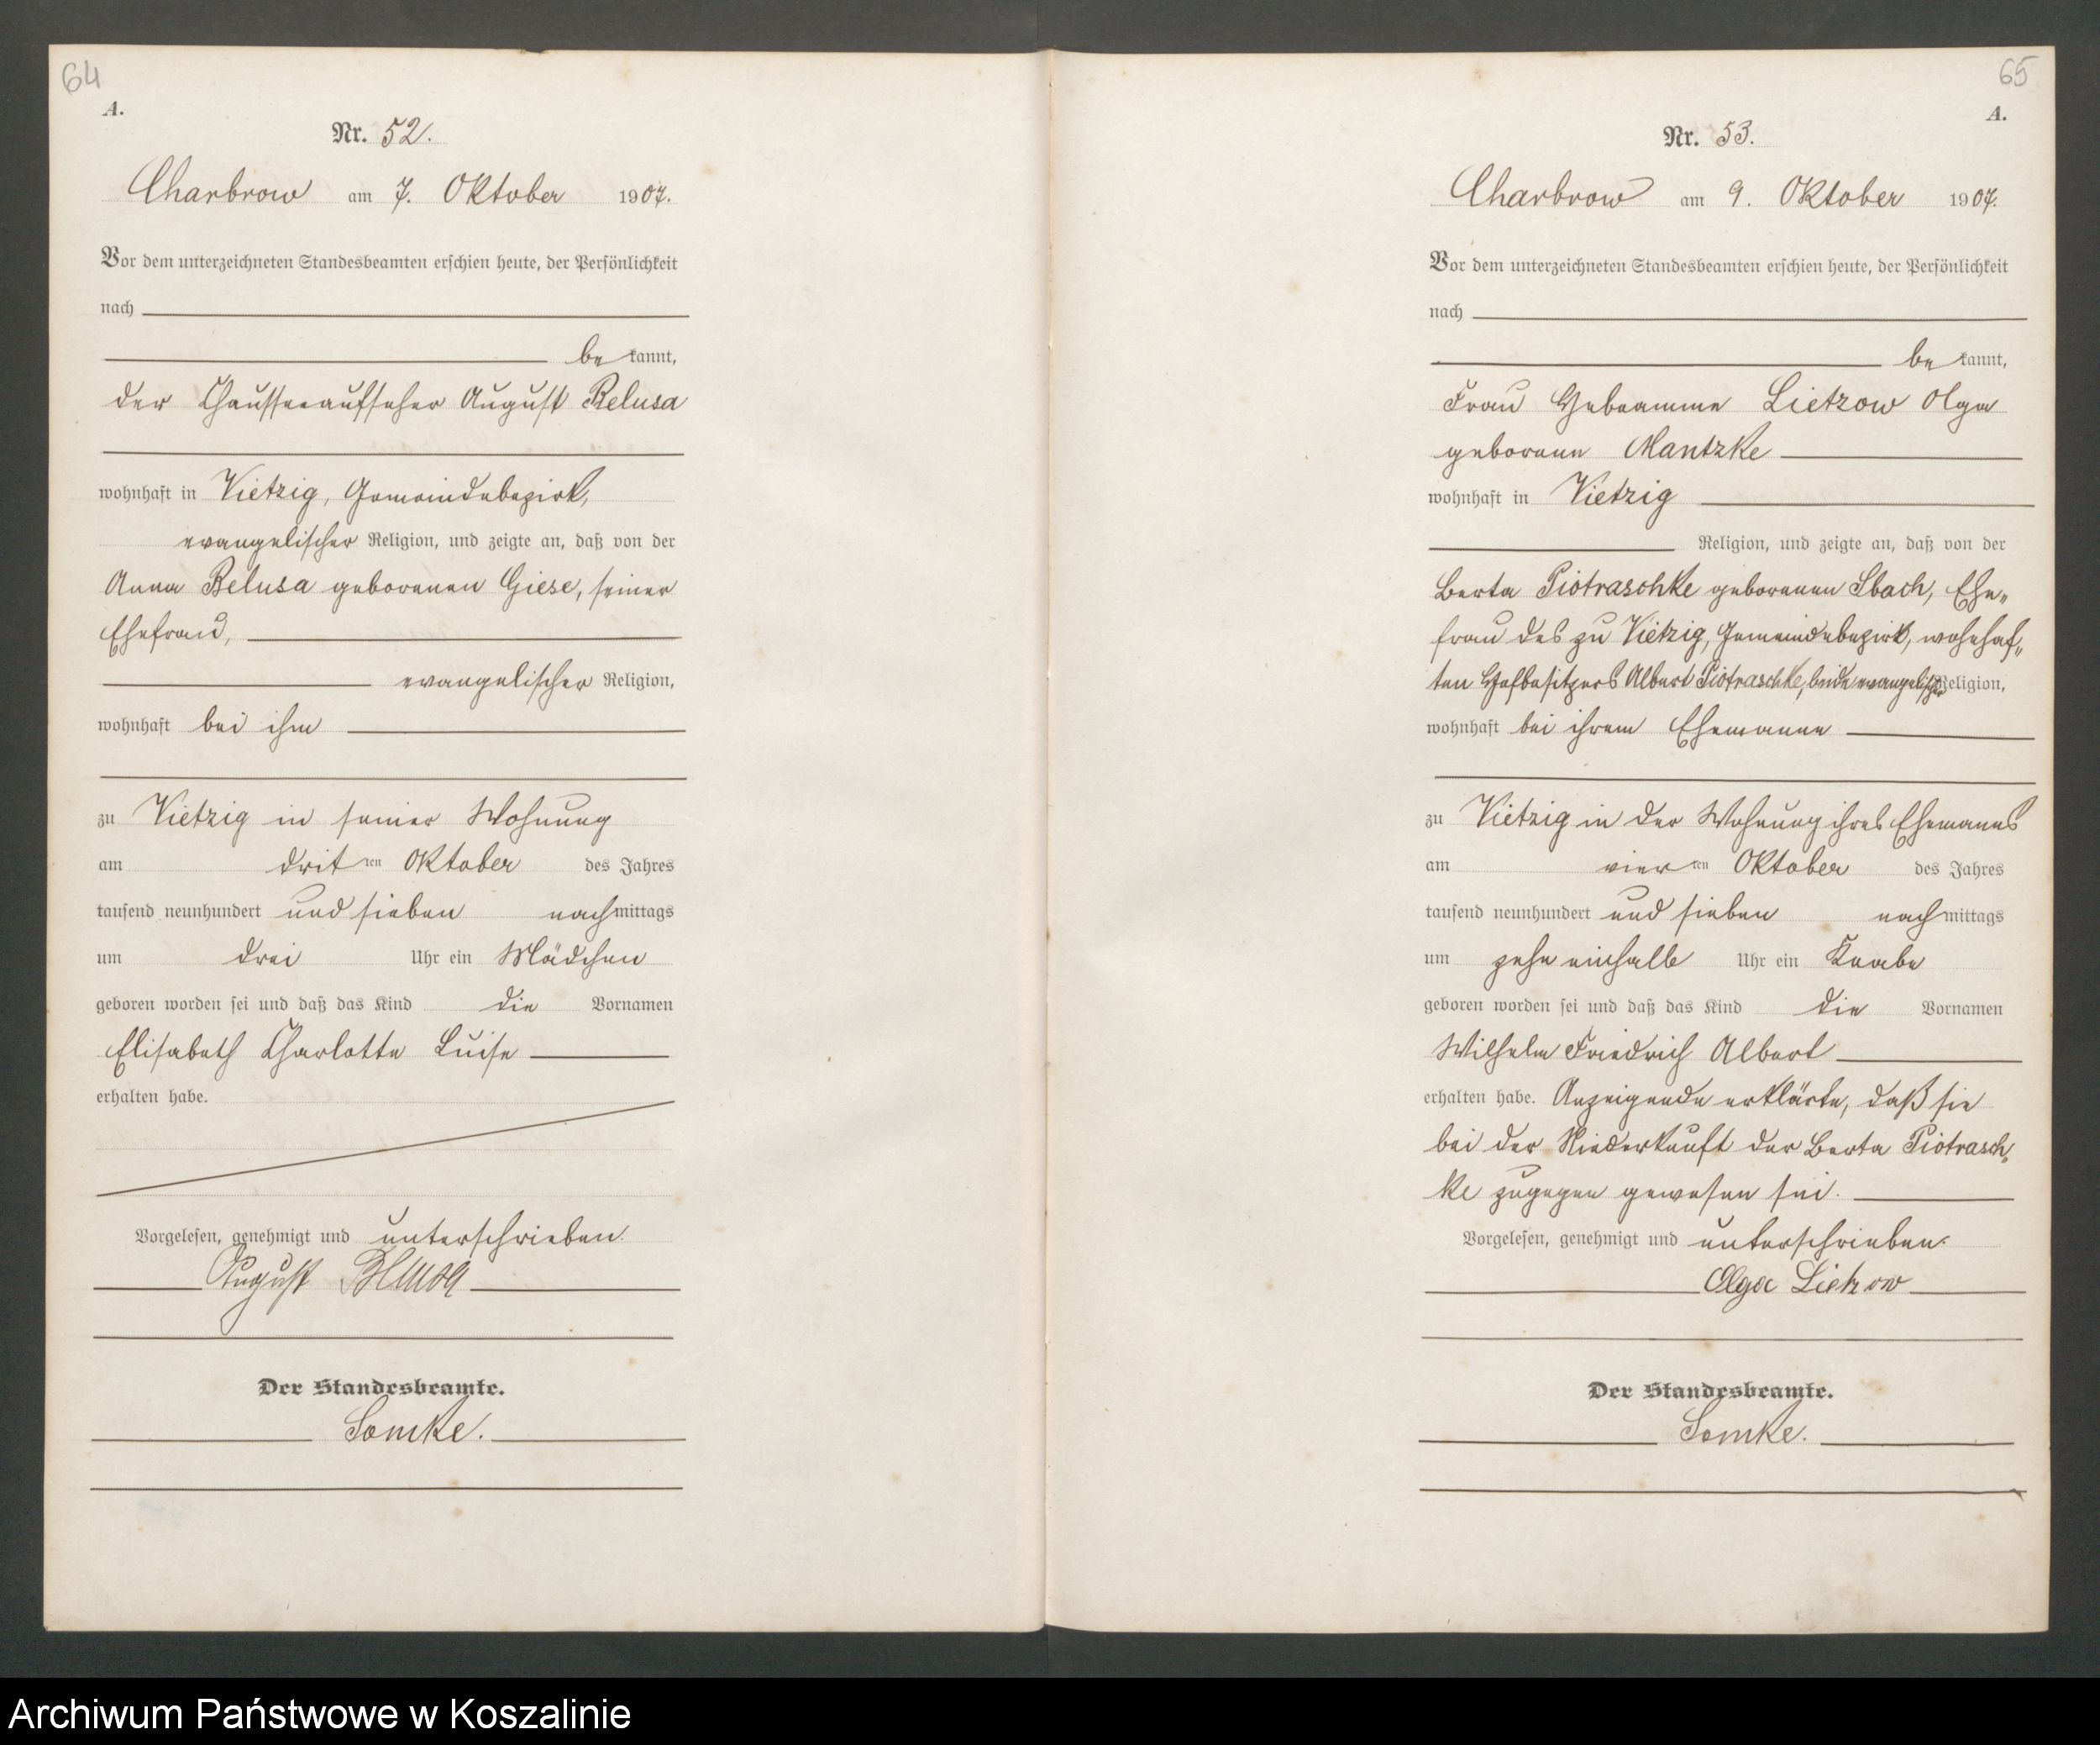 64
A.
Nr. 52.
Charbrow am 7. Oktober 1907.
Vor dem unterzeichneten Standesbeamten erschien heute, der Persönlichkeit
nach
be kannt,
der Chausseeaufseher August Belusa
wohnhaft in Vietzig, Gemeindebezirk,
evangelischer Religion, und zeigte an, daß von der
Anna Belusa geborenen Giese, seiner
Ehefrau,
evangelischer Religion,
wohnhaft bei ihm
zu Vietzig in seiner Wohnung
am dritten Oktober des Jahres
tausend neunhundert und sieben nachmittags
um drei Uhr ein Mädchen
geboren worden sei und daß das Kind die Vornamen
Elisabeth Charlotte Luise
erhalten habe.
Vorgelesen, genehmigt und unterschrieben.
August Belusa
Der Standesbeamte.
65
A.
Nr. 53.
Charbrow am 9. Oktober 1907.
Vor dem unterzeichneten Standesbeamten erschien heute, der Persönlichkeit
nach
be kannt,
Frau Hebeamme Lietzow Olga
geborene Mantzke
wohnhaft in Vietzig
Religion, und zeigte an, daß von der
Berta Piotraschke geborenen Sbach, Ehe„
frau des zu Vietzig, Gemeindebezirk, wohnhaf„
ten Hofbesitzers Albert Piotraschke, beide evangelischer Religion,
wohnhaft bei ihrem Ehemanne
zu Vietzig in der Wohnung ihres Ehemanns
am vierten Oktober des Jahres
tausend neunhundert und sieben nachmittags
um zehneinhalb Uhr ein Knabe
geboren worden sei und daß das Kind die Vornamen
Wilhelm Friedrich Albert
erhalten habe. Anzeigende erklärte, daß sie
bei der Niederkunft der Berta Piotrasch„
ke zugegen gewesen sei.
Vorgelesen, genehmigt und unterschrieben.
Olga Lietzow
Der Standesbeamte.
Archiwum Państwowe w Koszalinie